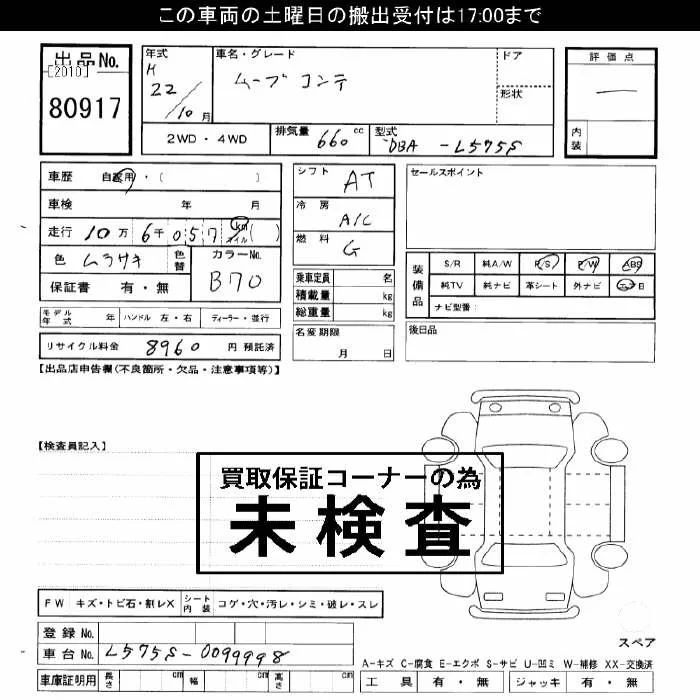 この車両の土曜日の搬出受付は17:00まで
出品No.
[2010]
80917
年式
H 22/10月
車名・グレード
ムーブ コンテ
ドア
形状
評価点
―
内装
2WD・4WD
排気量 660 cc
型式 DBA -L575S
車歴 自家用・( )
車検 年 月
走行 10万6千057 km マイル ( )
色 ムラサキ 色替
カラーNo.
B70
保証書 有・無
シフト AT
冷房 A/C
燃料 G
乗車定員 名
積載量 kg
総重量 kg
名変期限
月 日
セールスポイント
装備品
S/R 純A/W P/S P/W ABS
純TV 純ナビ 革シート 外ナビ エアB
ナビ型番:
後日品
モデル年式 年
ハンドル 左・右
ディーラー・並行
リサイクル料金 8960 円 預託済
【出品店申告欄(不良箇所・欠品・注意事項等)】
【検査員記入】
買取保証コーナーの為
未検査
FW キズ・トビ石・割レX
シート内装 コゲ・穴・汚レ・シミ・破レ・スレ
登録No.
車台No. L575S-0099998
車庫証明用 長さ cm 幅 cm 高さ cm
スペア
A-キズ C-腐食 E-エクボ S-サビ U-凹ミ W-補修 XX-交換済
工具 有・無 ジャッキ 有・無